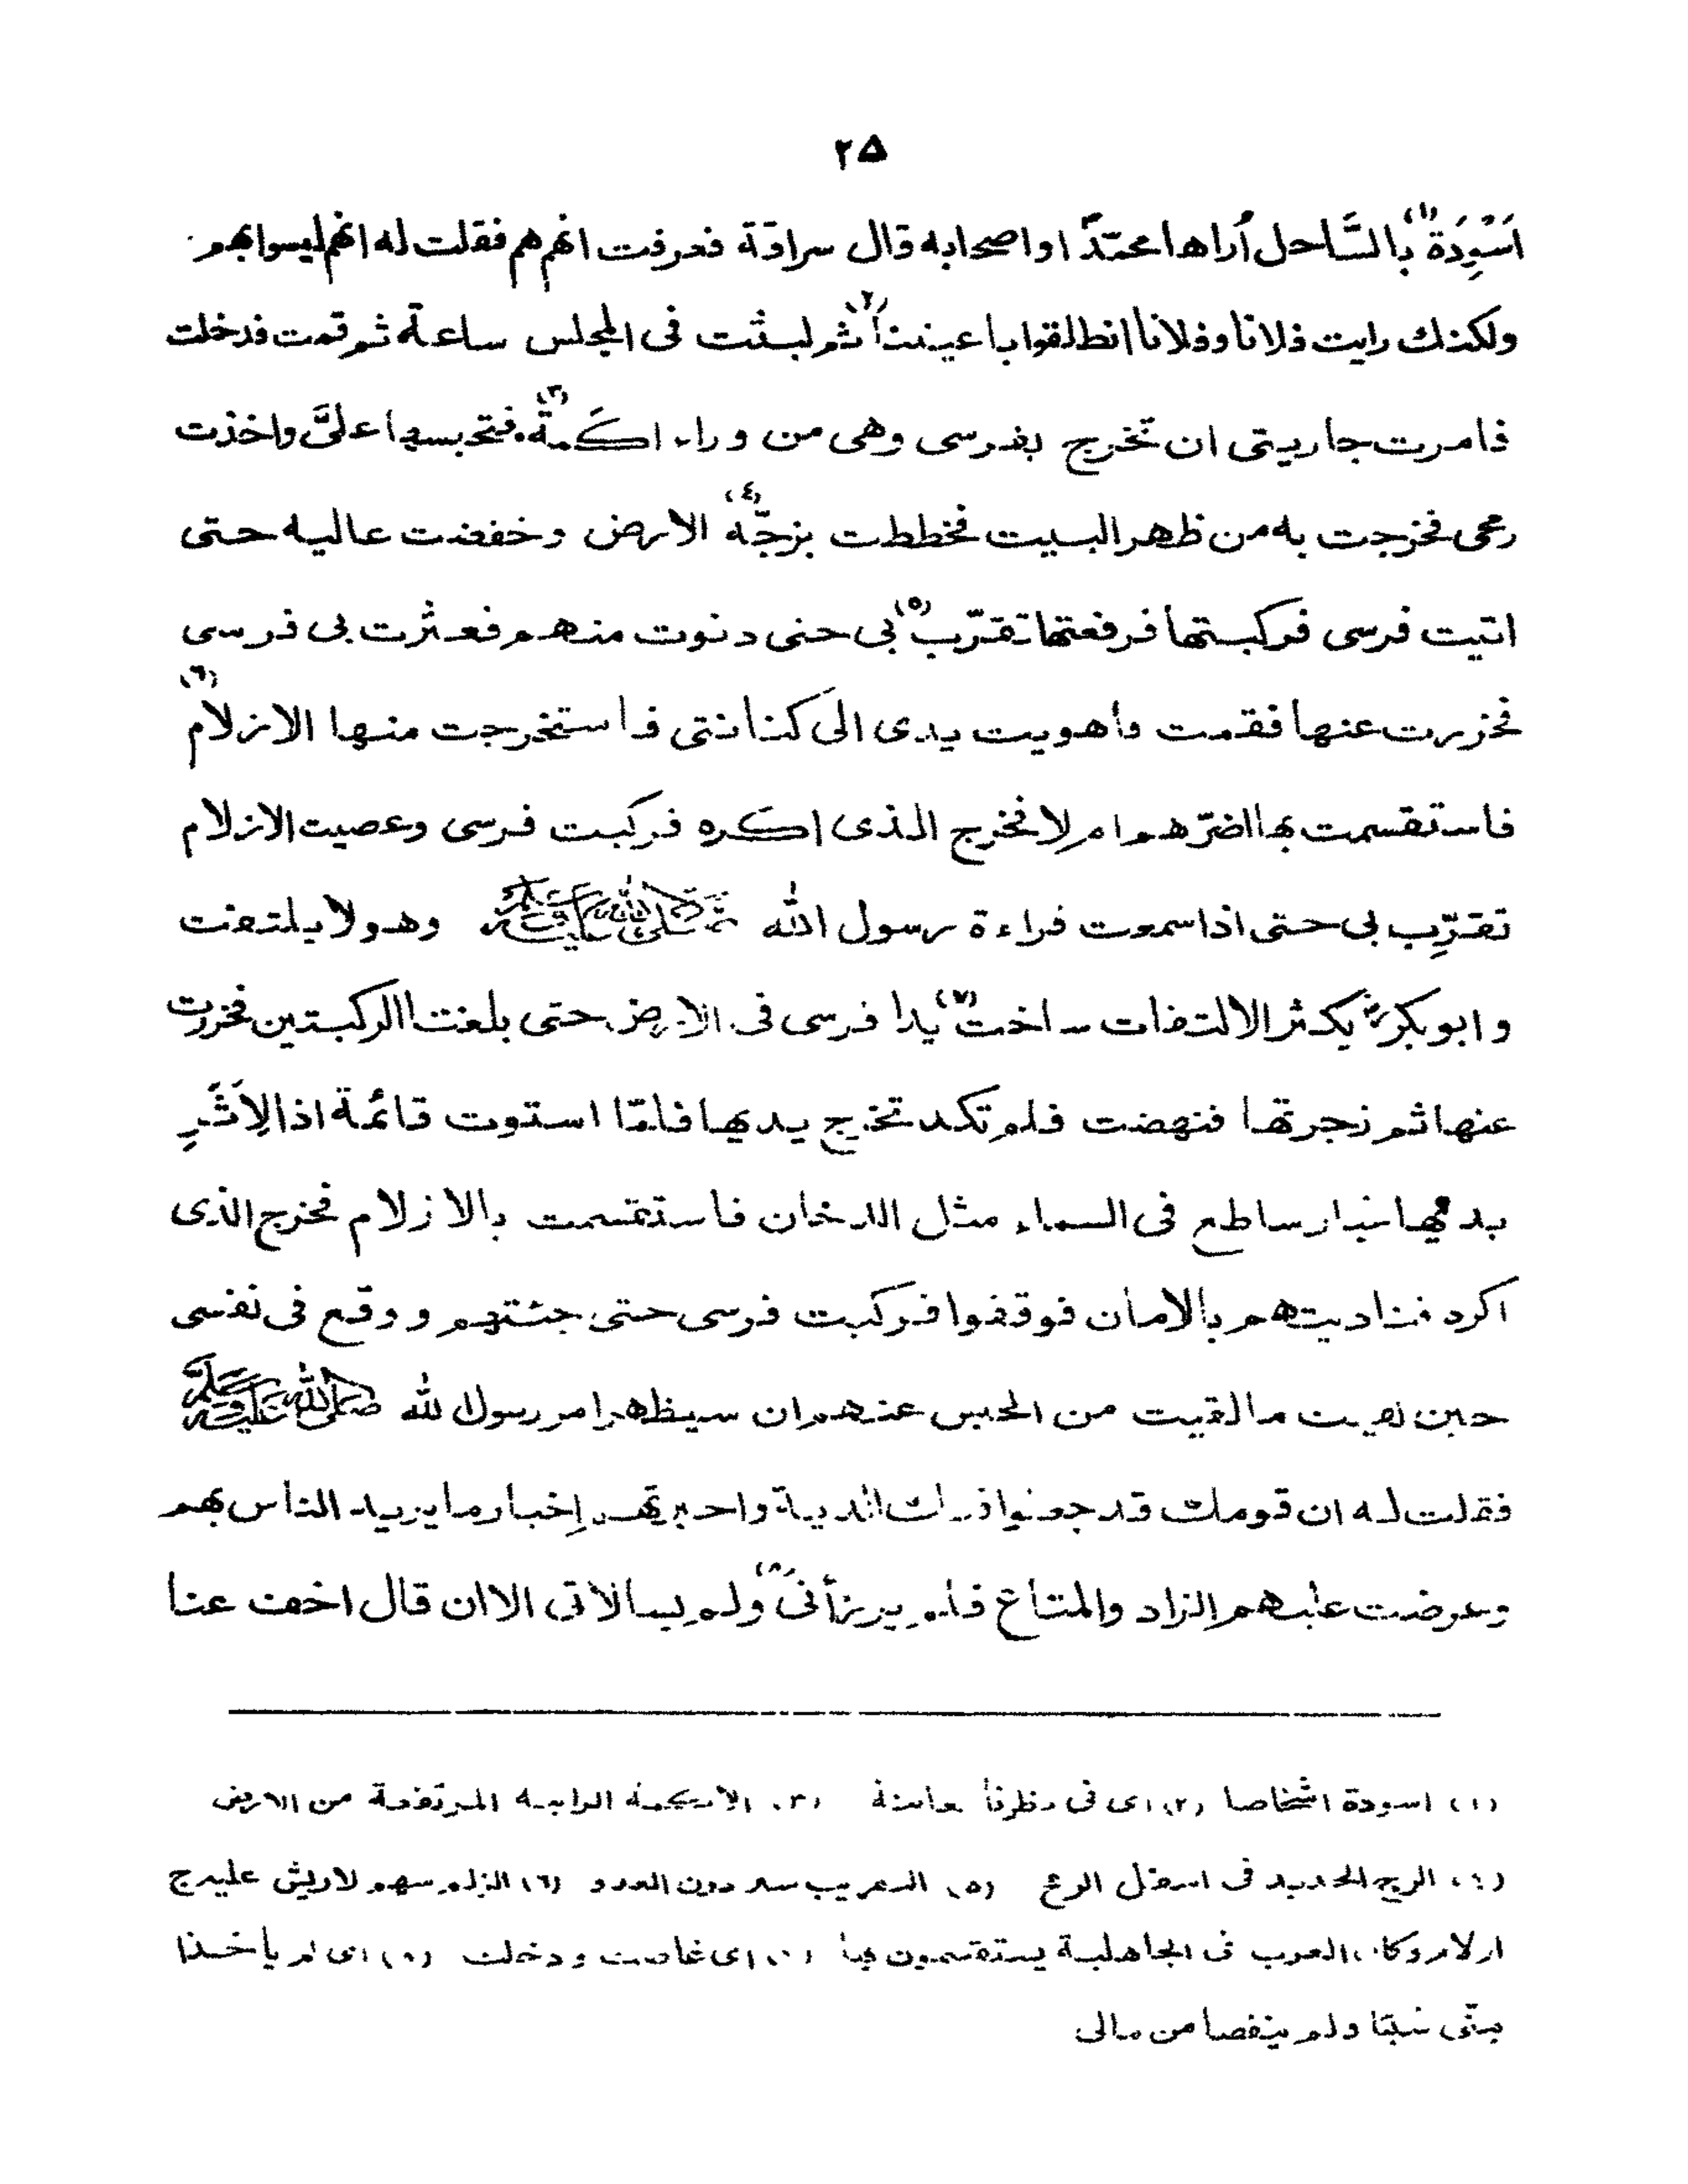 ٢۵
اَسْوِدَةً (١) بالسَّاحل أُراها محمّدًا او اصحابه قال سراقة فعرفت انهم هم فقلت له انهم ليسوا بهم
ولكنك رايت فلانا وفلانا انطلقوا باعيننا (٢) ثم لبثت فى المجلس ساعة ثم قمت فدخلت
فامرت جاريتى ان تخرج بفرسى وهى من وراء اكَمة (٣) فتحبسها علىَّ واخذت
رمحى فخرجت به من ظهر البيت فخططت بزجّه (٤) الارض وخفضت عاليه حتى
اتيت فرسى فركبتها فرفعتها تقرّب (٥) بى حتى دنوت منهم فعثرت بى فرسى
فخررت عنها فقمت واهويت يدى الى كنانتى فاستخرجت منها الازلام (٦)
فاستقسمت بها اضرّهم ام لا فخرج الذى اكره فركبت فرسى وعصيت الازلام
تقرِّب بى حتى اذا سمعت قراءة رسول الله صلى الله عليه وسلم وهو لا يلتفت
و ابو بكر يكثر الالتفات ساخت (٧) يدا فرسى فى الارض حتى بلغتا الركبتين فخررت
عنها ثم زجرتها فنهضت فلم تكد تخرج يديها فلمّا استوت قائمة اذا لِاَثَرِ
يديها غبار ساطع فى السماء مثل الدخان فاستقسمت بالازلام فخرج الذى
اكره فناديتهم بالامان فوقفوا فركبت فرسى حتى جئتهم ووقع فى نفسى
حين لقيت ما لقيت من الحبس عنهم ان سيظهر امر رسول لله صلى الله عليه وسلم
فقلت له ان قومك قد جعلوا فيك الدية واخبرتهم اخبار ما يريد الناس بهم
وعرضت عليهم الزاد والمتاع فلم يرزأنى (٨) ولم يسالانى الا ان قال اخف عنا
(١) اسودة اشخاصا (٢) اى فى نظرنا معاينة (٣) الاكمة الرابية المرتفعة من الارض
(٤) الزج الحديد فى اسفل الرمح (٥) التقريب سير دون العدو (٦) الزلم سهم لا ريش عليه ج
ازلام وكان العرب فى الجاهلية يستقسمون بها (٧) اى غاصت ودخلت (٨) اى لم ياخذا
منّى شيئا ولم ينقصا من مالى